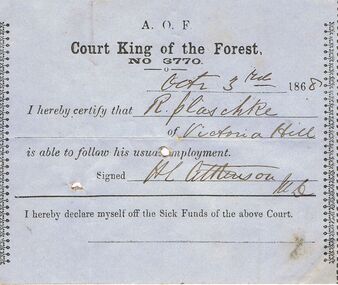 A. O. F
Court King of the Forest,
NO 3770.
Octr 3rd 1868
I hereby certify that R. plaschke
of Victoria Hill
is able to follow his usual employment.
Signed H L Atkinson
I hereby declare myself off the Sick Funds of the above Court.